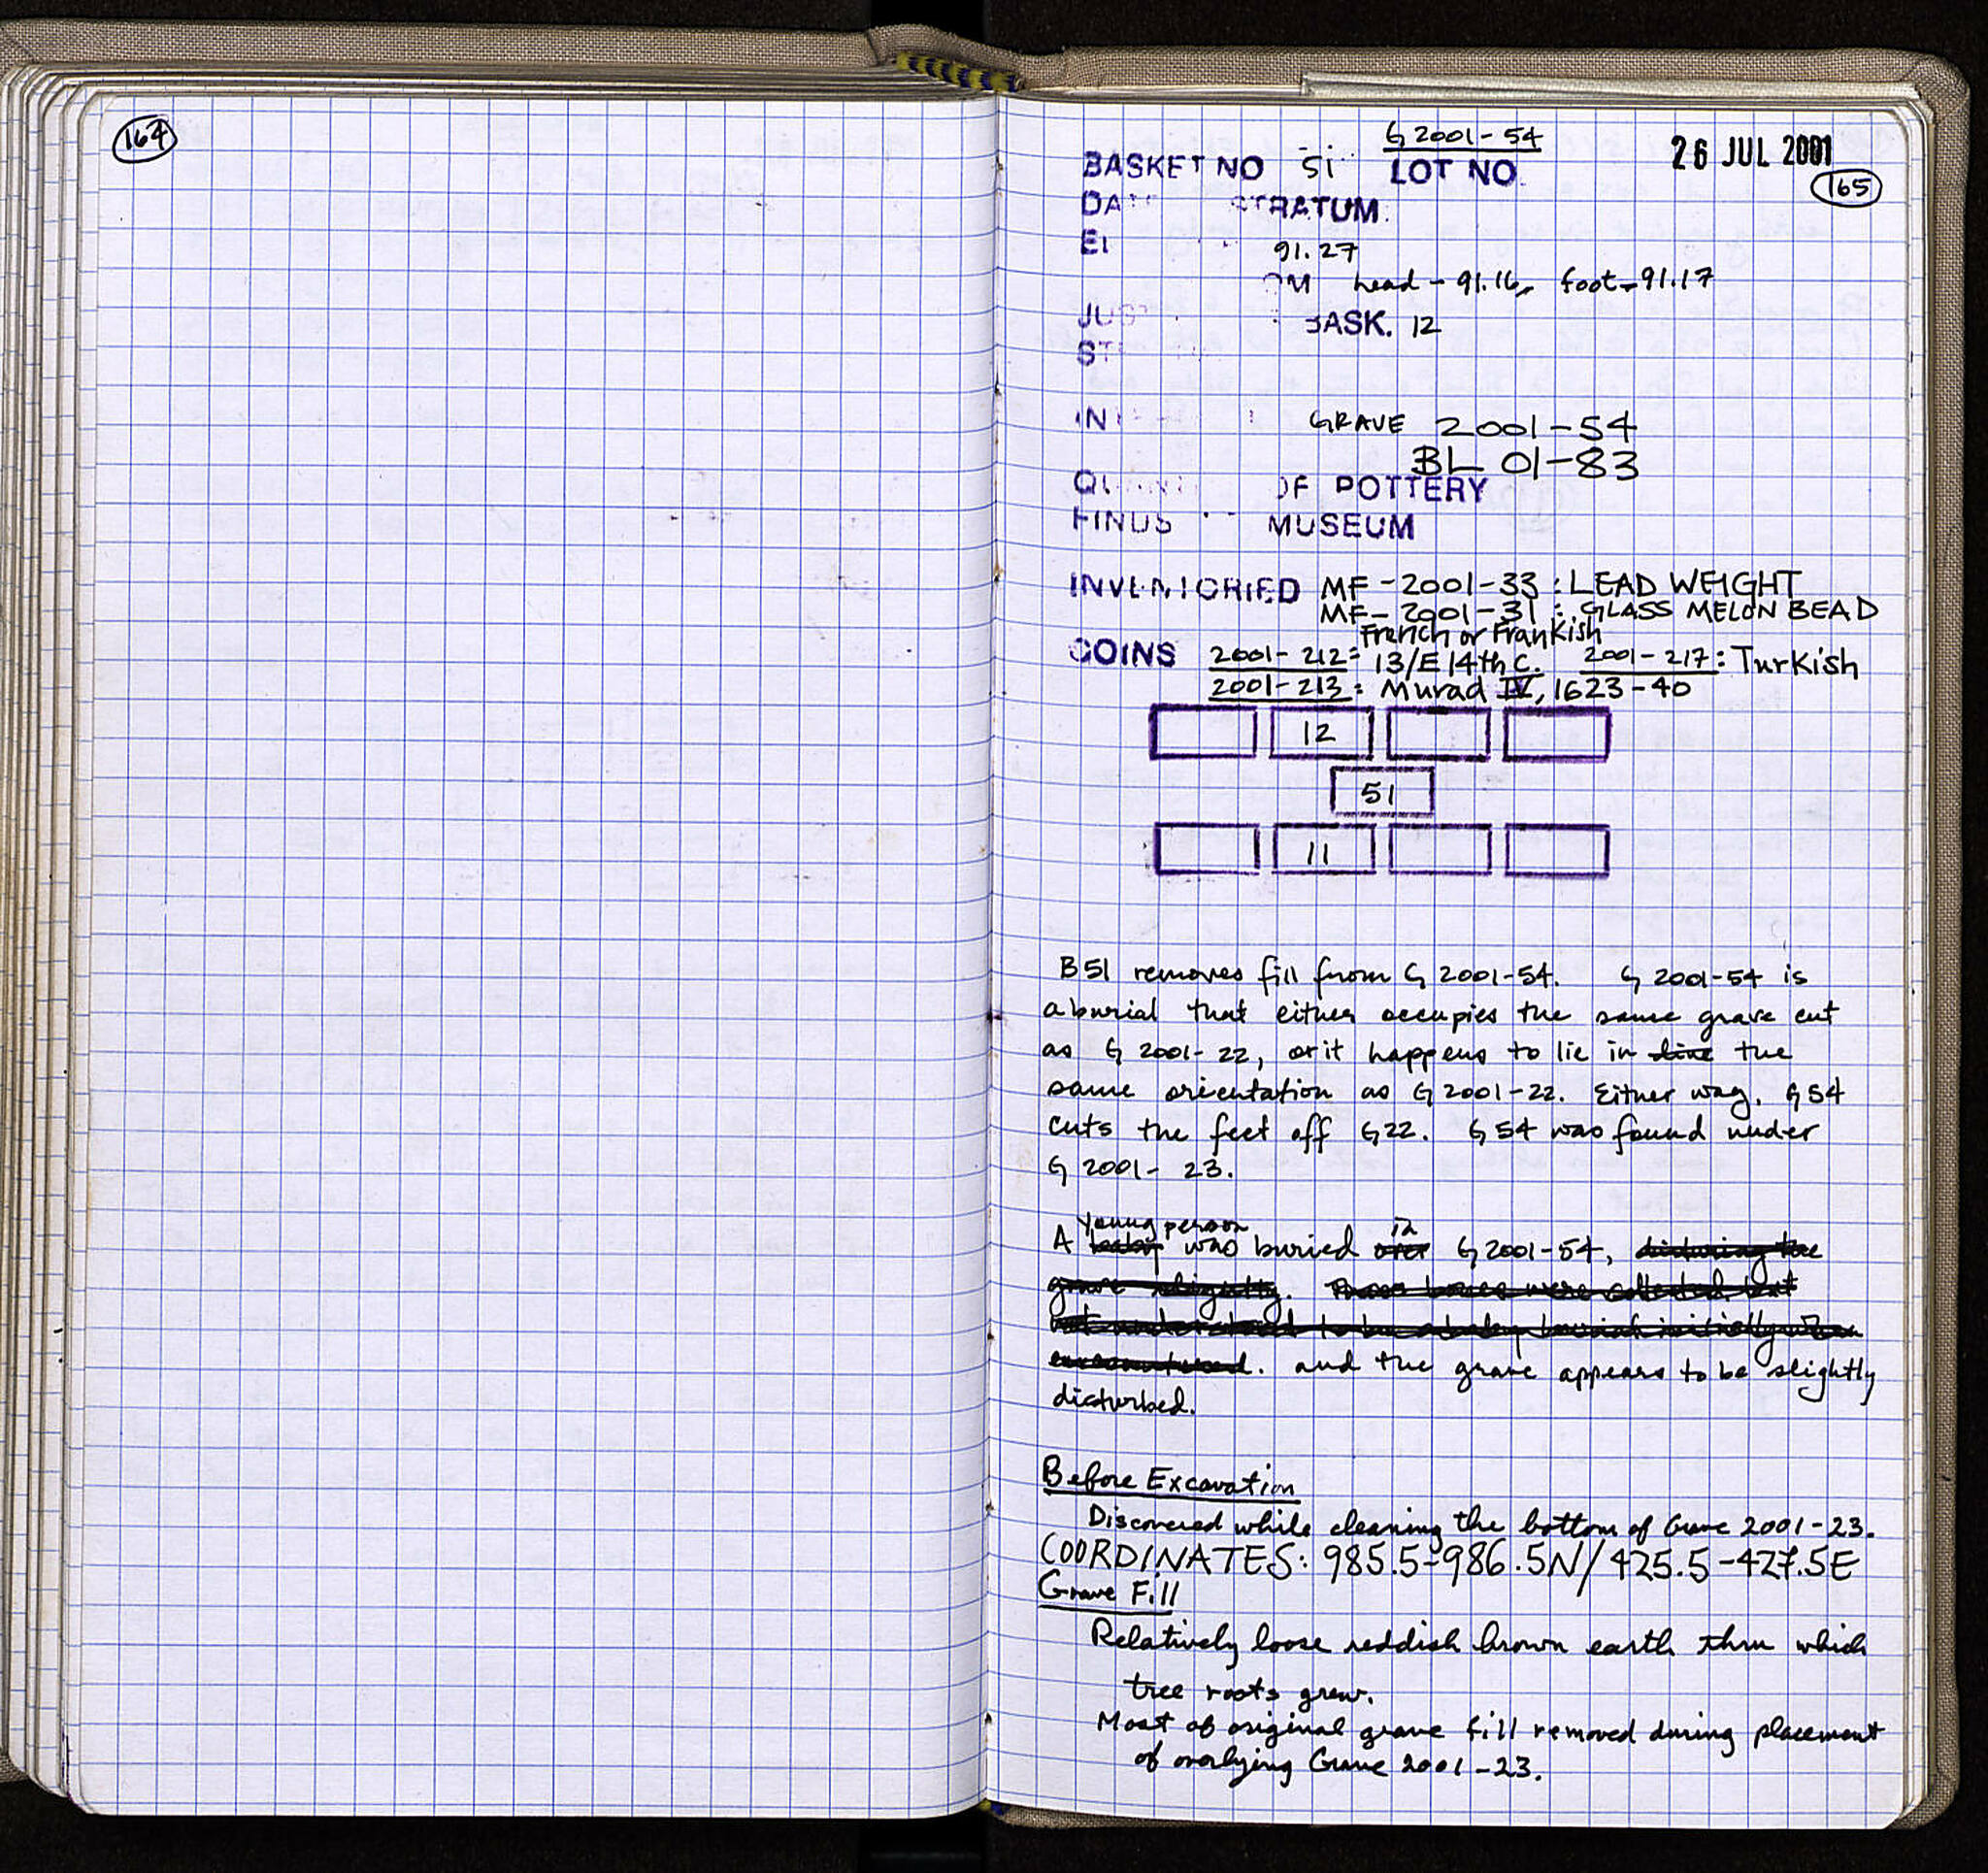 164
G 2001-54
BASKET NO 51 LOT NO. 26 JUL 2001
165
DA STRATUM
El 91.27
OM head - 91.16, foot - 91.17
JUS BASK. 12
ST
IN GRAVE 2001-54
BL 01-83
OF POTTERY
FINDS MUSEUM
INVENTORIED MF-2001-33: LEAD WEIGHT
MF-2001-31: GLASS MELON BEAD
French or Frankish
COINS 2001-212: 13/E 14th C. 2001-217: Turkish
2001-213: Murad IV, 1623-40
12
51
11
B51 removes fill from G 2001-54. G 2001-54 is
a burial that either occupies the same grave cut
as G 2001-22, or it happens to lie in line the
same orientation as G 2001-22. Either way, G54
cuts the feet off G22. G54 was found under
G 2001-23.
young person in
A baby was buried over G 2001-54, disturing the
grave slightly. These bones were collected, but
not understood to be a baby burial initially when
encountered. and the grave appears to be slightly
disturbed.
Before Excavation
Discovered while cleaning the bottom of Grave 2001-23.
COORDINATES: 985.5-986.5N/425.5-427.5E
Grave Fill
Relatively loose reddish brown earth thru which
tree roots grew.
Most of original grave fill removed during placement
of overlying Grave 2001-23.